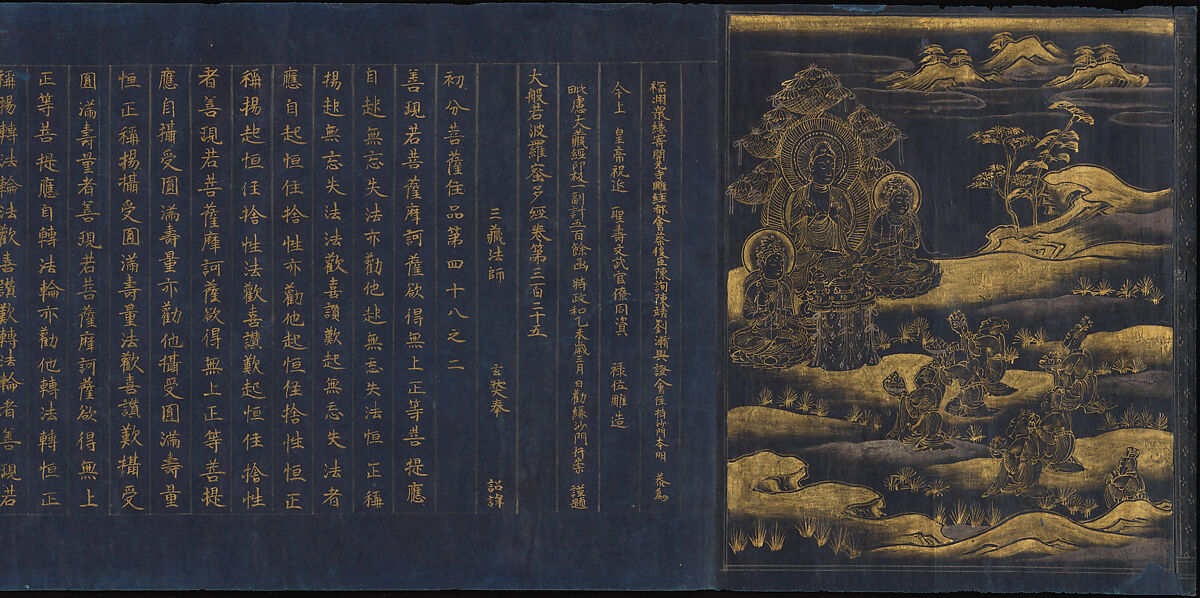 福州衆縁寄開元寺雕經都會蔡俊臣陳詢陳靖劉漸與證會住持沙門本明 恭為
今上 皇帝祝延 聖壽文武官僚同資 祿位雕造
毗盧大藏經印板一副計五百餘函 時政和乙未歲三月日勸緣沙門行崇 謹題
大般若波羅蜜多經卷第三百二十五
三藏法師 玄奘奉 詔譯
初分菩薩住品第四十八之二
善現若菩薩摩訶薩欲得無上正等菩提應
自起無忘失法亦勸他起無忘失法恒正稱
揚起無忘失法法歡喜讚歎起無忘失法者
應自起恒住捨性亦勸他起恒住捨性恒正
稱揚起恒住捨性法歡喜讚歎起恒住捨性
者善現若菩薩摩訶薩欲得無上正等菩提
應自攝受圓滿壽量亦勸他攝受圓滿壽量
恒正稱揚攝受圓滿壽量法歡喜讚歎攝受
圓滿壽量者善現若菩薩摩訶薩欲得無上
正等菩提應自轉法輪亦勸他轉法輪恒正
稱揚轉法輪法歡喜讚歎轉法輪者善現若